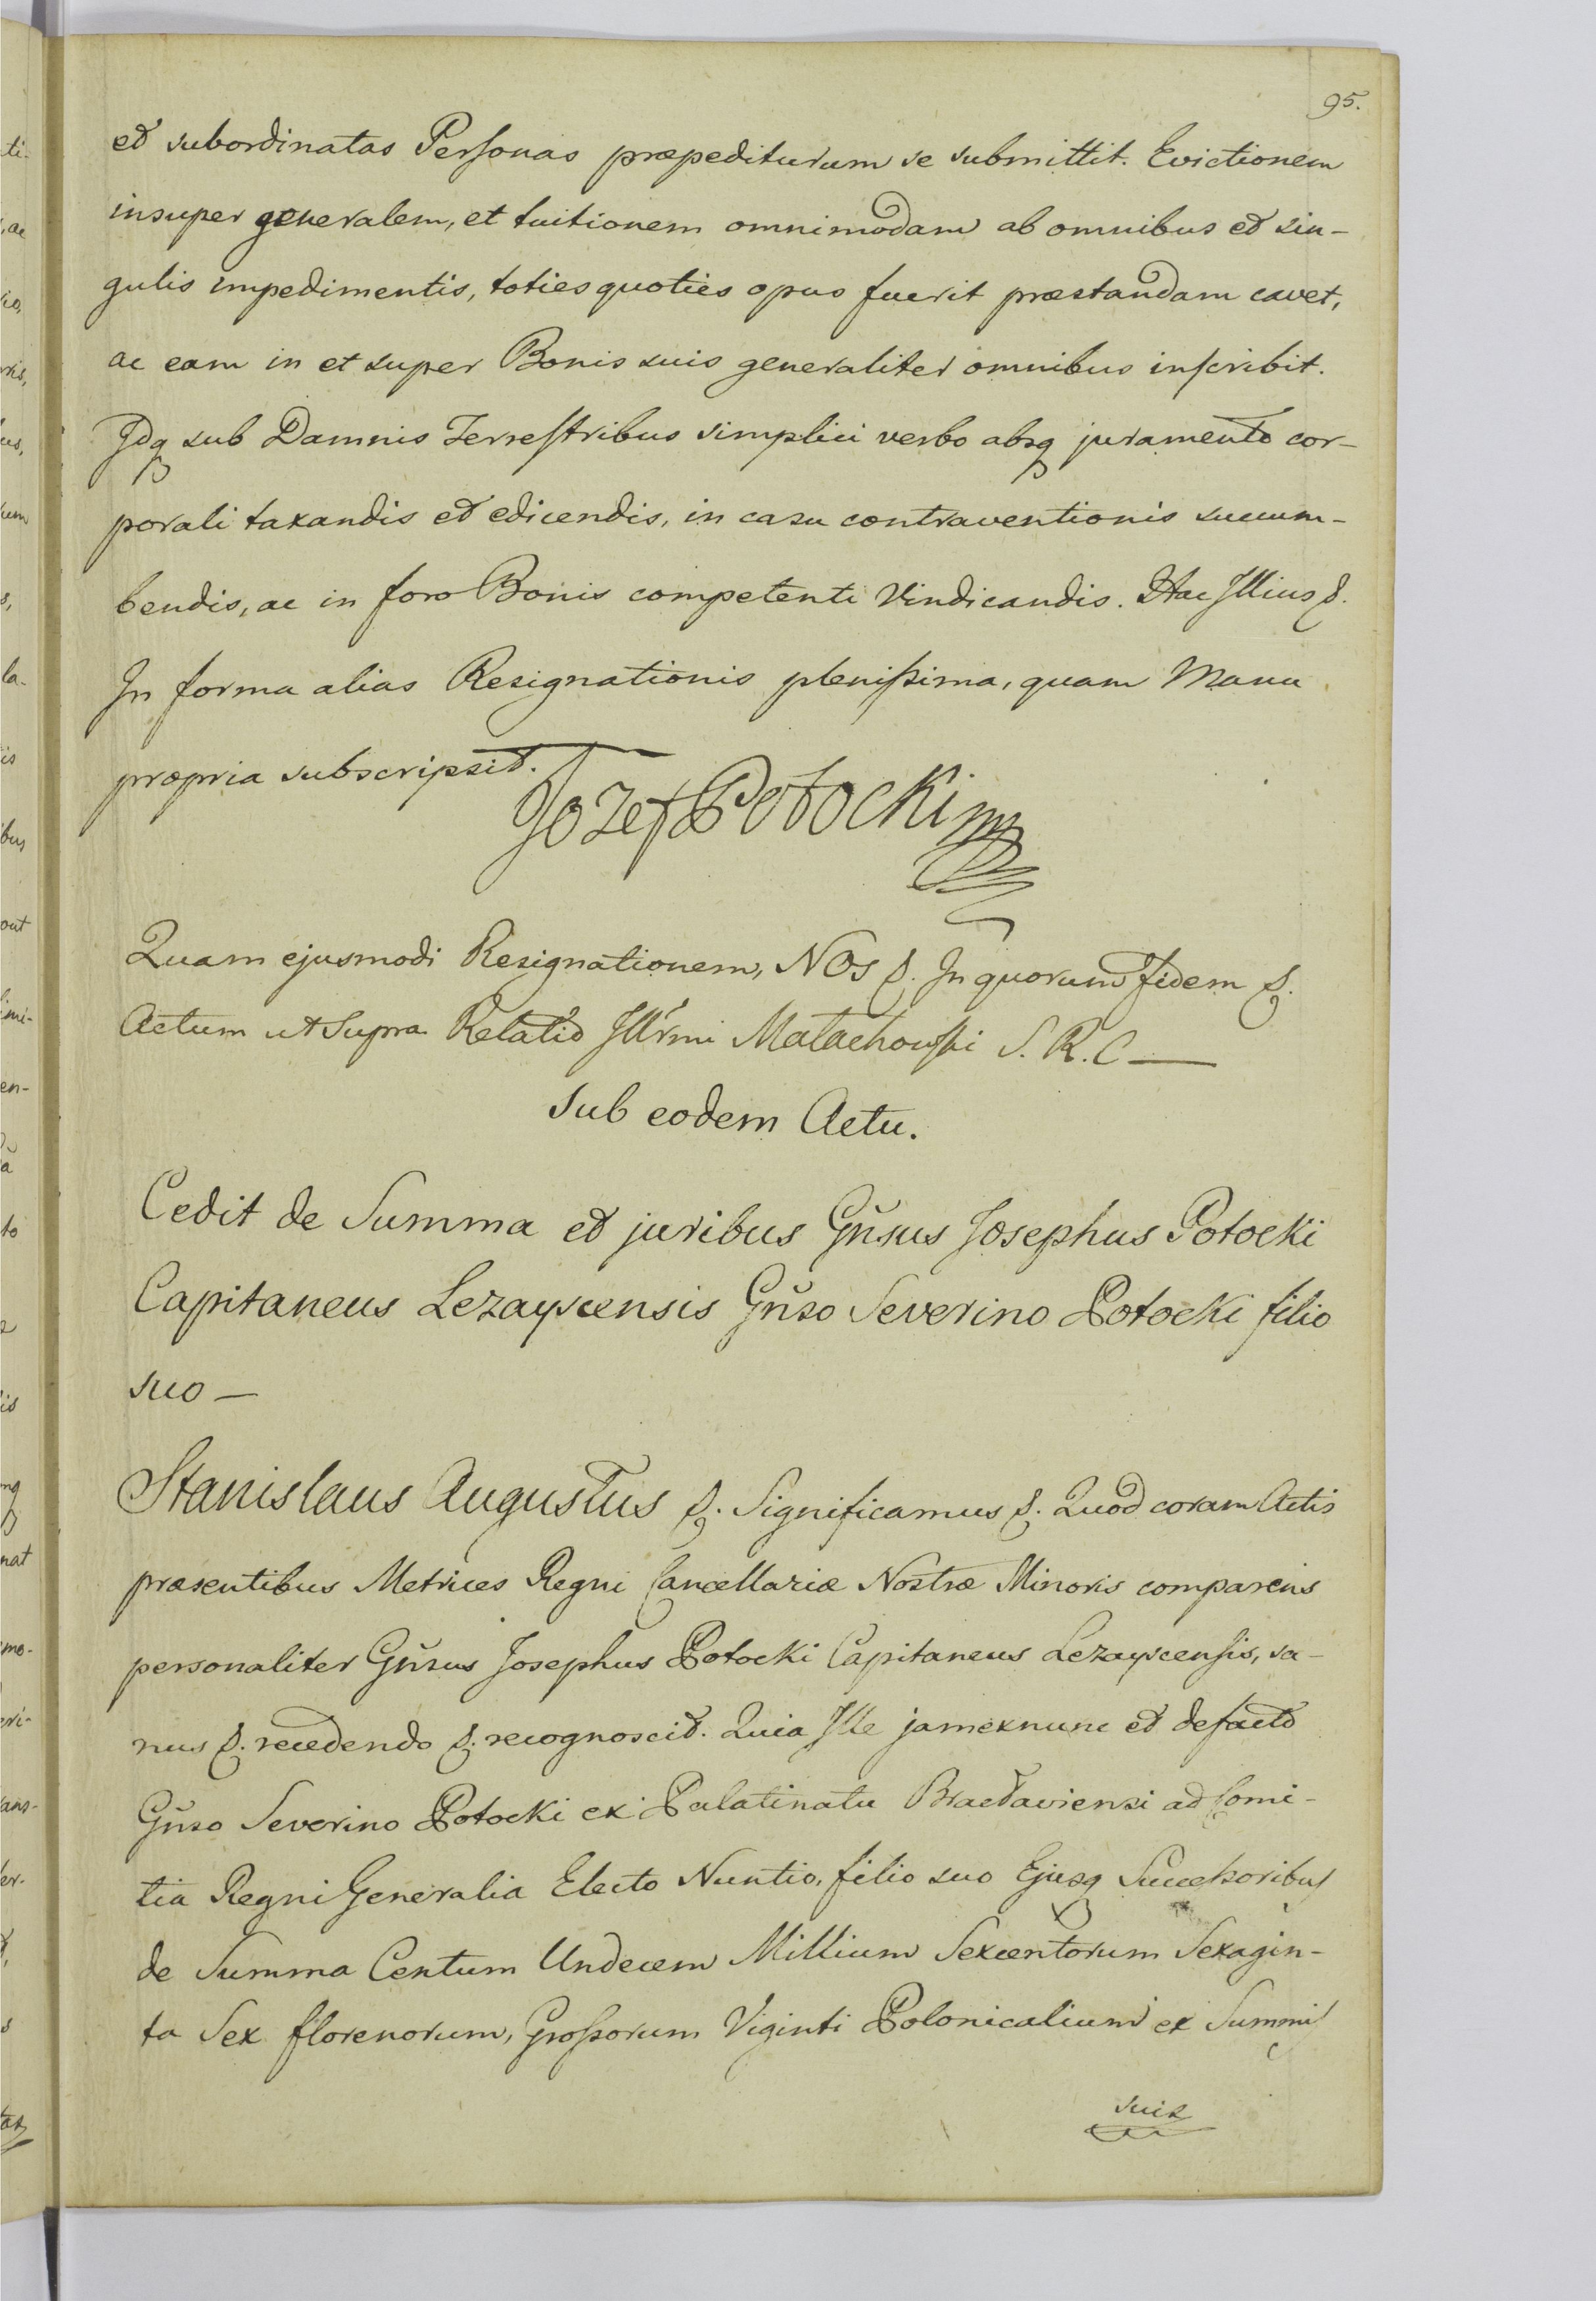 95.
et subordinatas Personas præpediturum se submittit. Evictionem
insuper generalem, et tuitionem omnimodam ab omnibus et sin-
gulis impedimentis, toties quoties opus fuerit præstandam cavet,
ac eam in et super Bonis suis generaliter omnibus inscribit.
Idq sub Damnis Terrestribus simplici verbo absq juramento cor-
porali taxandis et edicendis, in casu contraventionis succum-
bendis, ac in foro Bonis competenti Vindicandis. Hac Illius &.
In forma alias Resignationis plenissima, quam Manu
propria subscripsit.
Jozef Potocki mp
Quam ejusmodi Resignationem, NOs &. In quorum fidem &.
Actum ut Supra Relatio Illrmi Małachowski S. R. C —
Sub eodem Actu.
Cedit de Summa et juribus Gn̄sus Josephus Potocki
Capitaneus Lezayscensis Gn̄so Severino Potocki filio
suo —
Stanislaus Augustus &. Significamus &. Quod coram Actis
præsentibus Metrices Regni Cancellariæ Nostræ Minoris comparens
personaliter Gn̄sus Josephus Potocki Capitaneus Lezayscensis, sa-
nus &. recedendo &. recognoscit. Quia Ille jamexnunc et defacto
Gn̄so Severino Potocki ex Palatinatu Bracłaviensi ad Comi-
tia Regni Generalia Electo Nuntio, filio suo Ejusq Successoribus
de Summa Centum Undecem Millium Sexcentorum Sexagin-
ta Sex florenorum, Grossorum Viginti Polonicalium ex Summis
suis